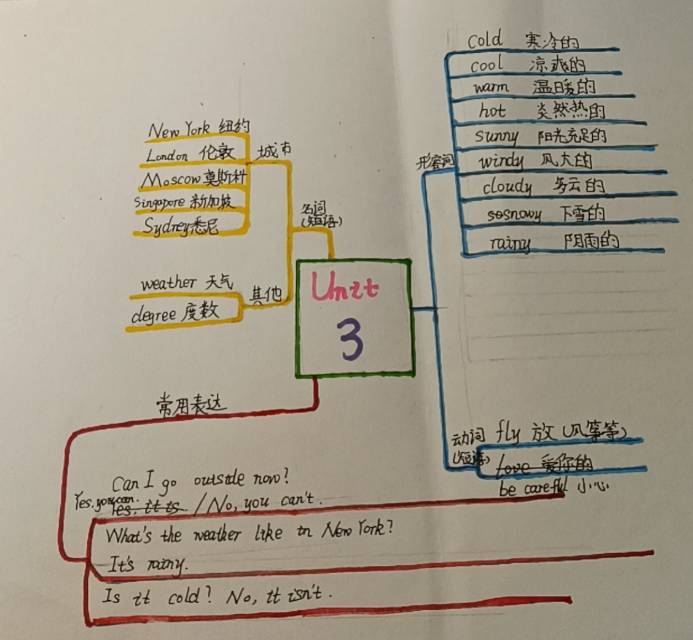 Unit
3
名词
(短语)
城市
New York 纽约
London 伦敦
Moscow 莫斯科
Singapore 新加坡
Sydney悉尼
其他
weather 天气
degree 度数
形容词
cold 寒冷的
cool 凉爽的
warm 温暖的
hot 炎热的
sunny 阳光充足的
windy 风大的
cloudy 多云的
sosnowy 下雪的
rainy 阴雨的
动词
(短语)
fly 放(风筝等)
love 爱你的
be careful 小心
常用表达
Can I go outside now?
Yes, you can.
Yes, it is / No, you can't.
What's the weather like in New York?
It's rainy.
Is it cold? No, it isn't.